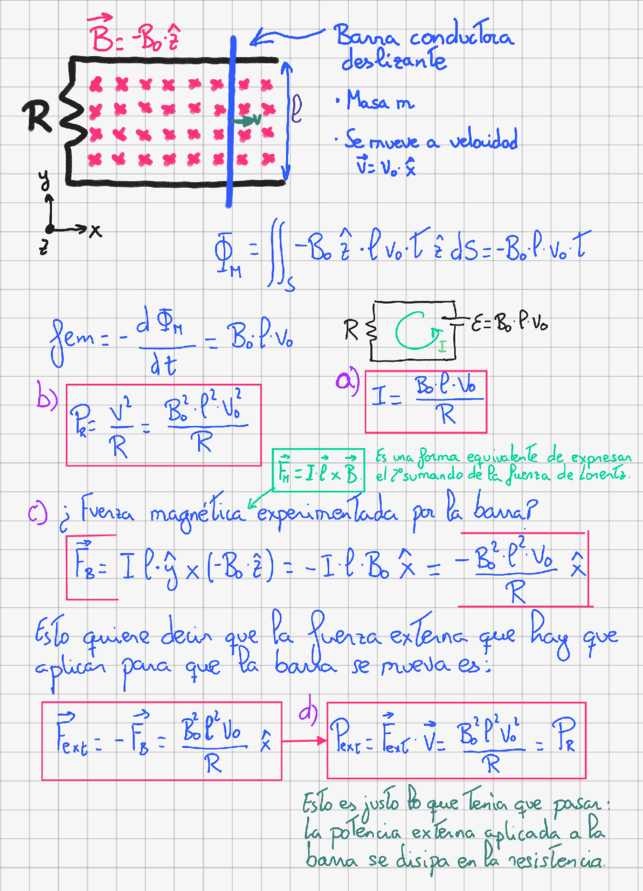 B⃗ = -B₀·ẑ
Barra conductora
deslizante
• Masa m
• Se mueve a velocidad
v⃗ = v₀·x̂
R
ℓ
v
y
x
z
Φ_M = ∬_S -B₀ ẑ · ℓ v₀·t ẑ dS = -B₀·ℓ·v₀·t
fem = - dΦ_M/dt = B₀·ℓ·v₀
R
I
ε = B₀·ℓ·v₀
a) I = B₀·ℓ·v₀/R
b) P_R = V²/R = B₀²·ℓ²·v₀²/R
F⃗_M = I·ℓ⃗ × B⃗
Es una forma equivalente de expresar
el 2º sumando de la fuerza de Lorentz.
c) ¿Fuerza magnética experimentada por la barra?
F⃗_B = I ℓ·ŷ × (-B₀·ẑ) = -I·ℓ·B₀ x̂ = -B₀²·ℓ²·v₀/R x̂
Esto quiere decir que la fuerza externa que hay que
aplicar para que la barra se mueva es:
F⃗ext = -F⃗_B = B₀² ℓ² v₀/R x̂
d) Pext = F⃗ext · v⃗ = B₀² ℓ² v₀²/R = P_R
Esto es justo lo que tenía que pasar:
la potencia externa aplicada a la
barra se disipa en la resistencia.